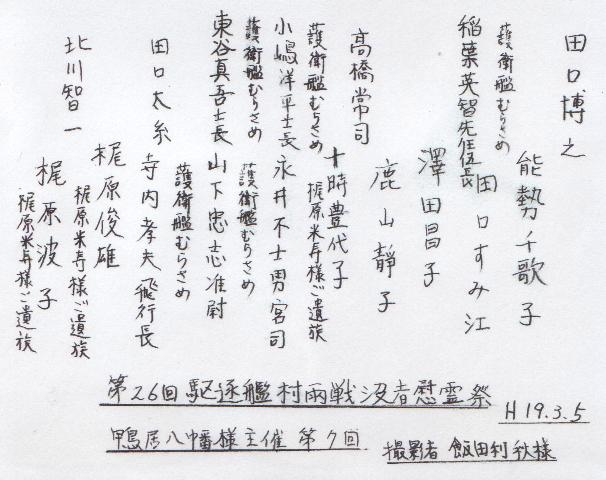 田口博之
護衛艦むらさめ
稲葉英智先任伍長
高橋常司
護衛艦むらさめ
小嶋洋平士長
護衛艦むらさめ
東谷真吾士長
田口太糸
北川智一
能勢千歌子
田口すみ江
澤田昌子
鹿山靜子
梶原米寿様ご遺族
十時豊代子
永井不士男宮司
護衛艦むらさめ
山下忠志准尉
護衛艦むらさめ
寺内孝夫飛行長
梶原俊雄
梶原米寿様ご遺族
梶原波子
梶原米寿様ご遺族
第26回駆逐艦村雨戦没者慰霊祭
H19.3.5
鴨居八幡様主催 第7回
撮影者 飯田利秋様